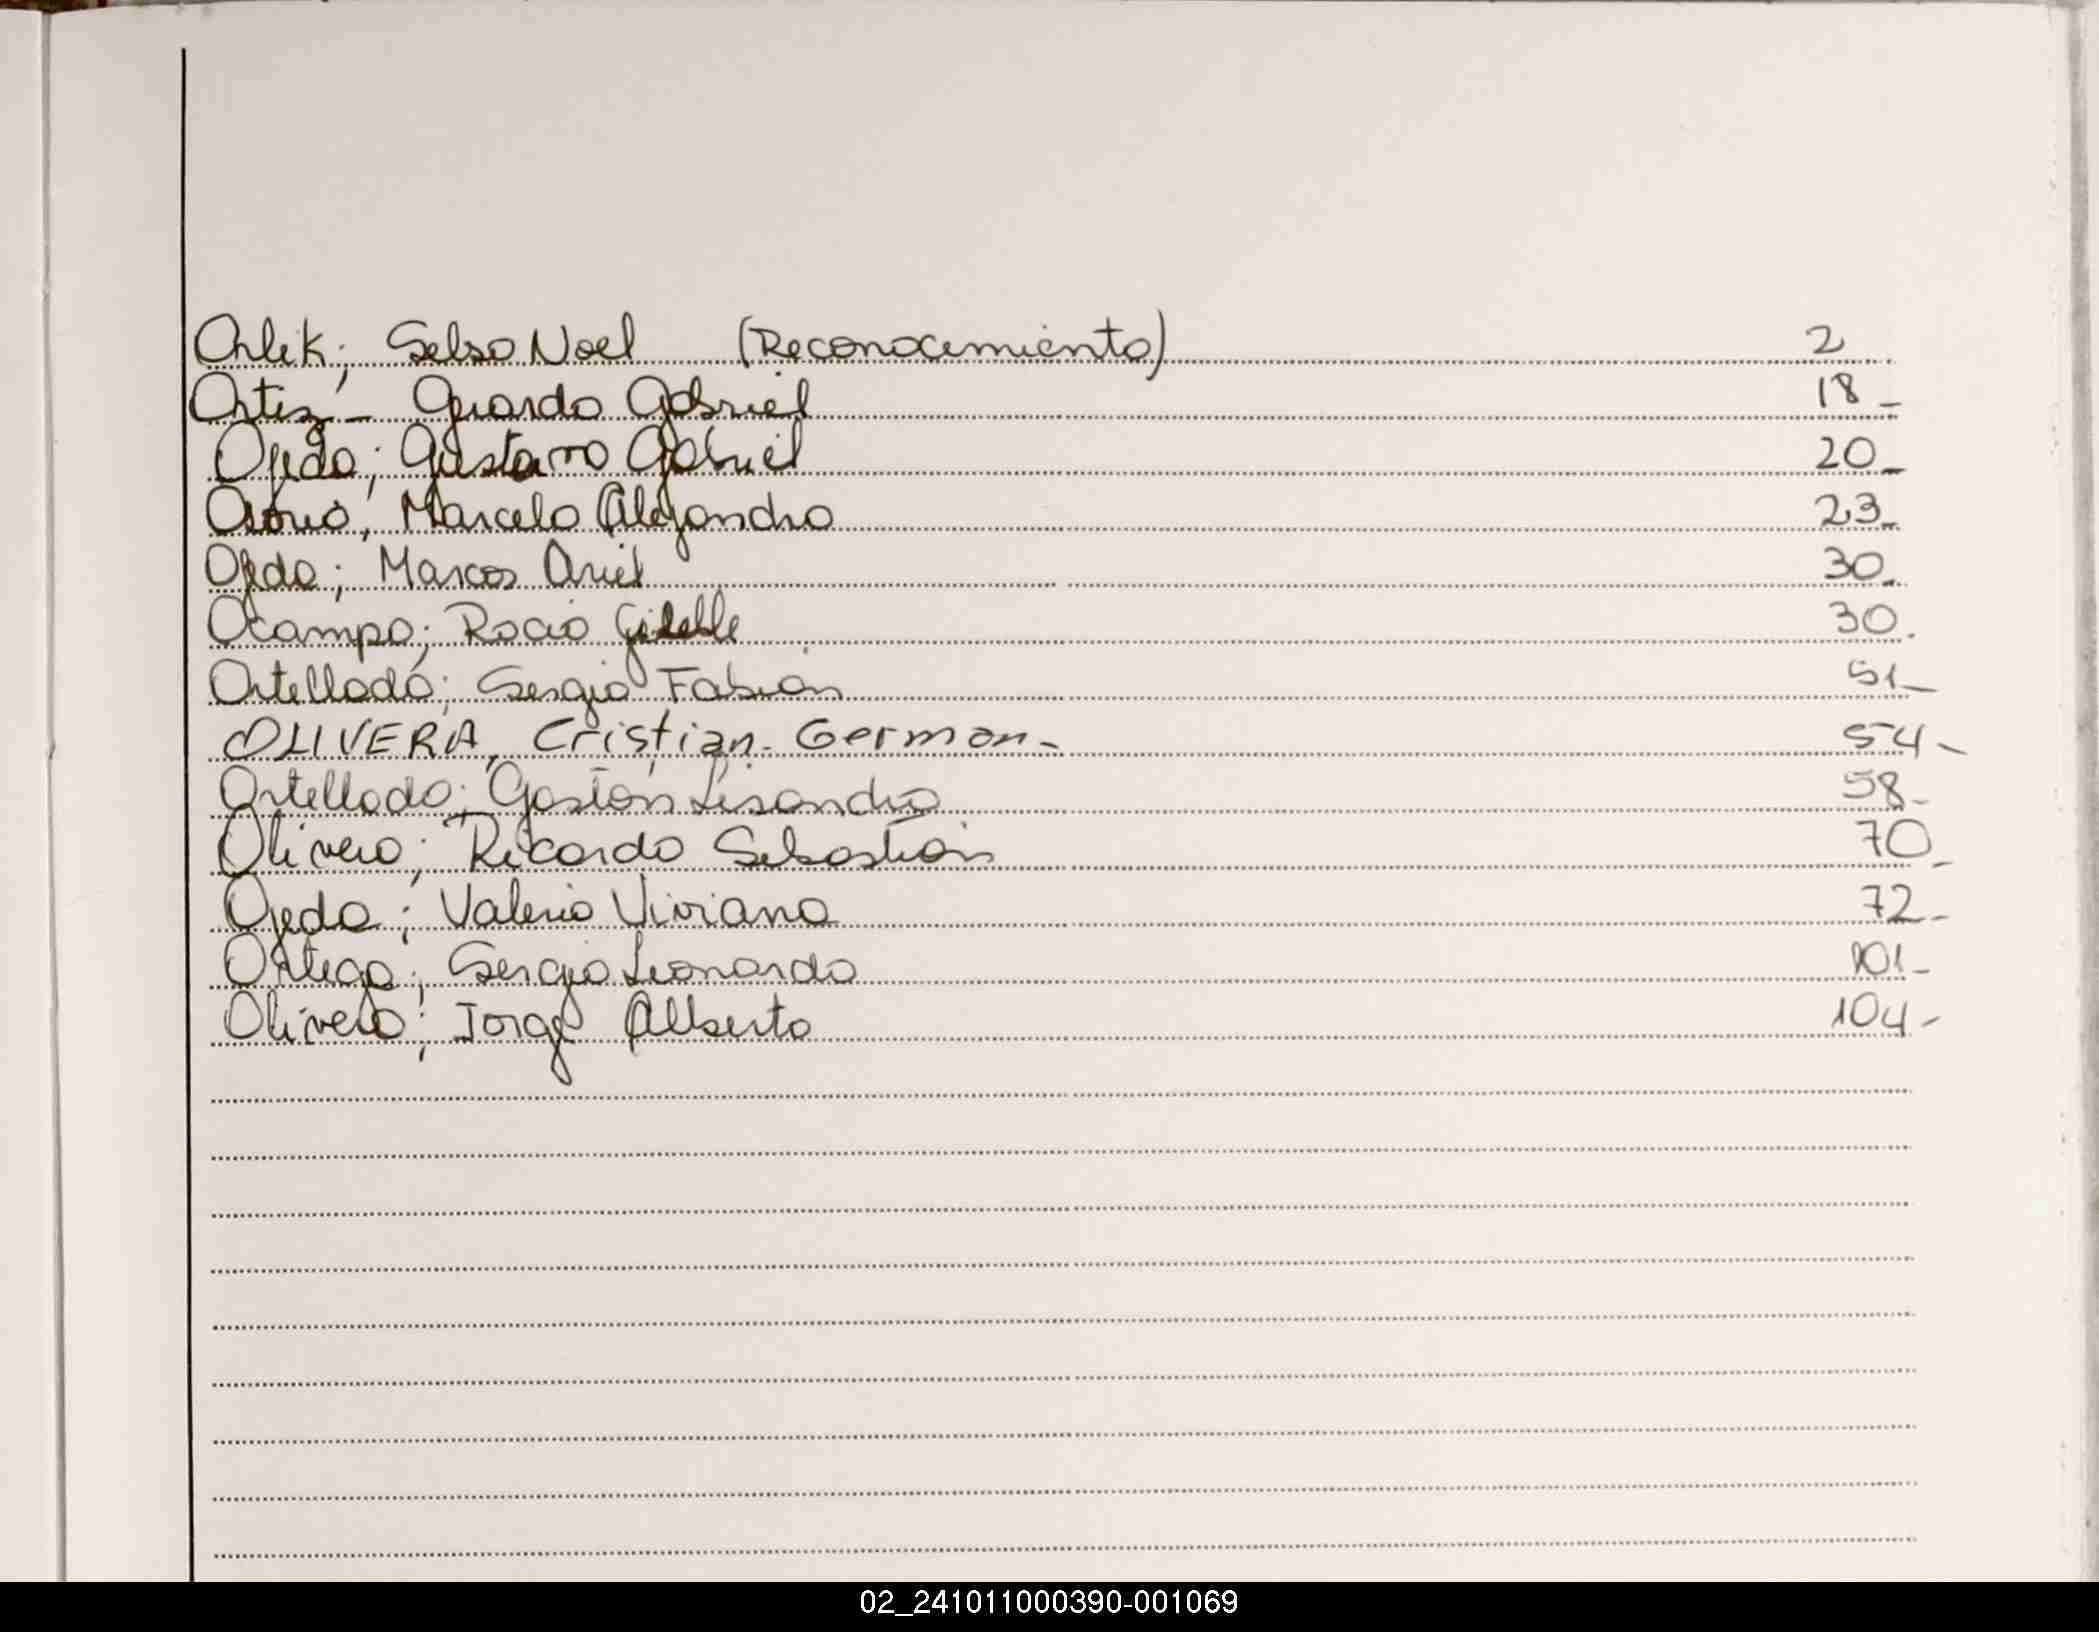 Orlik; Selso Noel (Reconocimiento) 2
Ortiz - Gerardo Gabriel 18-
Ojeda; Gustavo Gabriel 20-
Osorio, Marcelo Alejandro 23-
Ojeda; Marcos Ariel 30-
Ocampo; Rocio 30.
Ortellado; Sergio Fabián 51-
OLIVERA, Cristian. German- 54-
Ortellado; Gastón Lisandro 58-
Olivera; Ricardo Sebastián 70-
Ojeda; Valeria Viviana 72-
Ortega; Sergio Leonardo 101-
Olivera; Jorge Alberto 104-
02_241011000390-001069